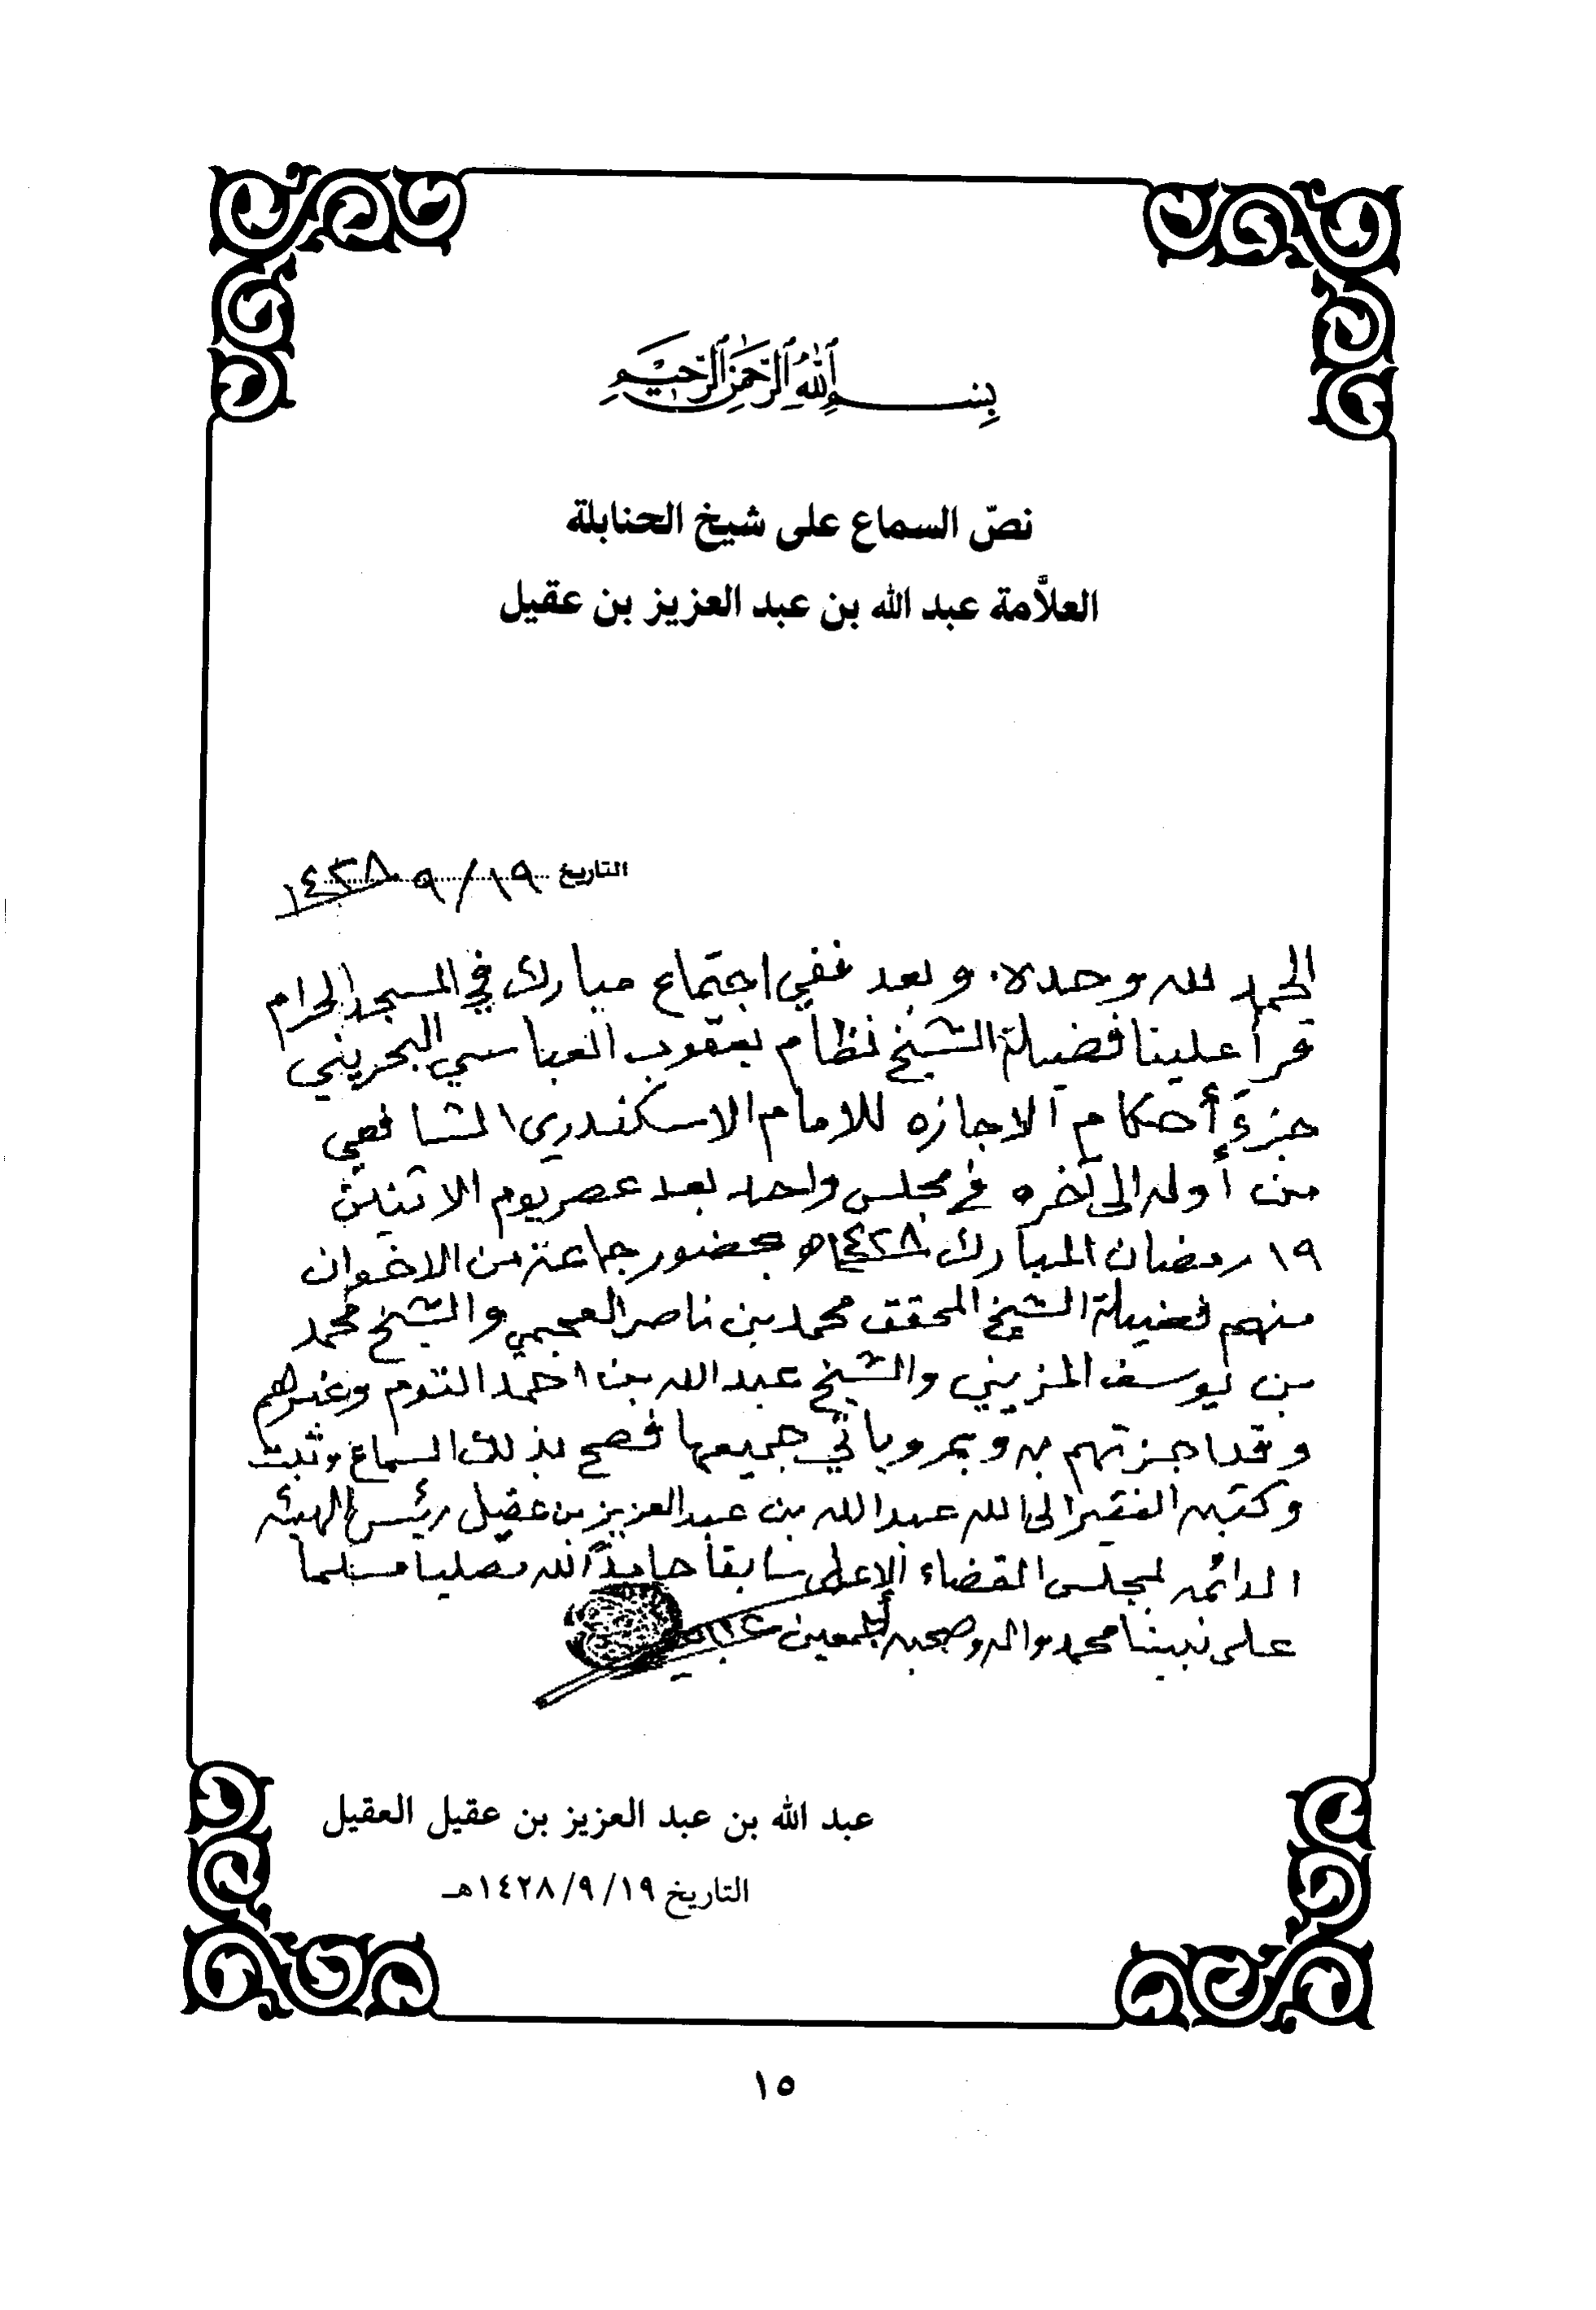 بِسْمِ ٱللَّهِ ٱلرَّحْمَٰنِ ٱلرَّحِيمِ
نصّ السماع على شيخ الحنابلة
العلاَّمة عبد الله بن عبد العزيز بن عقيل
التاريخ ١٩/ ٩ ١٤٢٨
الحمد لله وحده. وبعد ففي اجتماع مبارك في المسجد الحرام
قرأ علينا فضيلة الشيخ نظام يعقوب العباسي البحريني
جزؤ أحكام الاجازه للامام الاسكندري الشافعي
من أوله الى آخره في مجلس واحد بعد عصر يوم الاثنين
١٩ رمضان المبارك ١٤٢٨ه بحضور جماعة من الاخوان
منهم فضيلة الشيخ المحقق محمد بن ناصر العجمي والشيخ محمد
بن يوسف المزيني والشيخ عبد الله بن احمد التوم وغيرهم
وقد اجزتهم به وبمروياتي جميعها فصح بذلك السماع وثبت
وكتبه الفقير الى الله عبد الله بن عبد العزيز بن عقيل رئيس الهيئه
الدائمه لمجلس القضاء الاعلى سابقا حامدًا لله مصليا مسلما
على نبينا محمد واله وصحبه أجمعين
عبد الله بن عبد العزيز بن عقيل العقيل
التاريخ ١٩/ ٩/ ١٤٢٨هـ
١٥